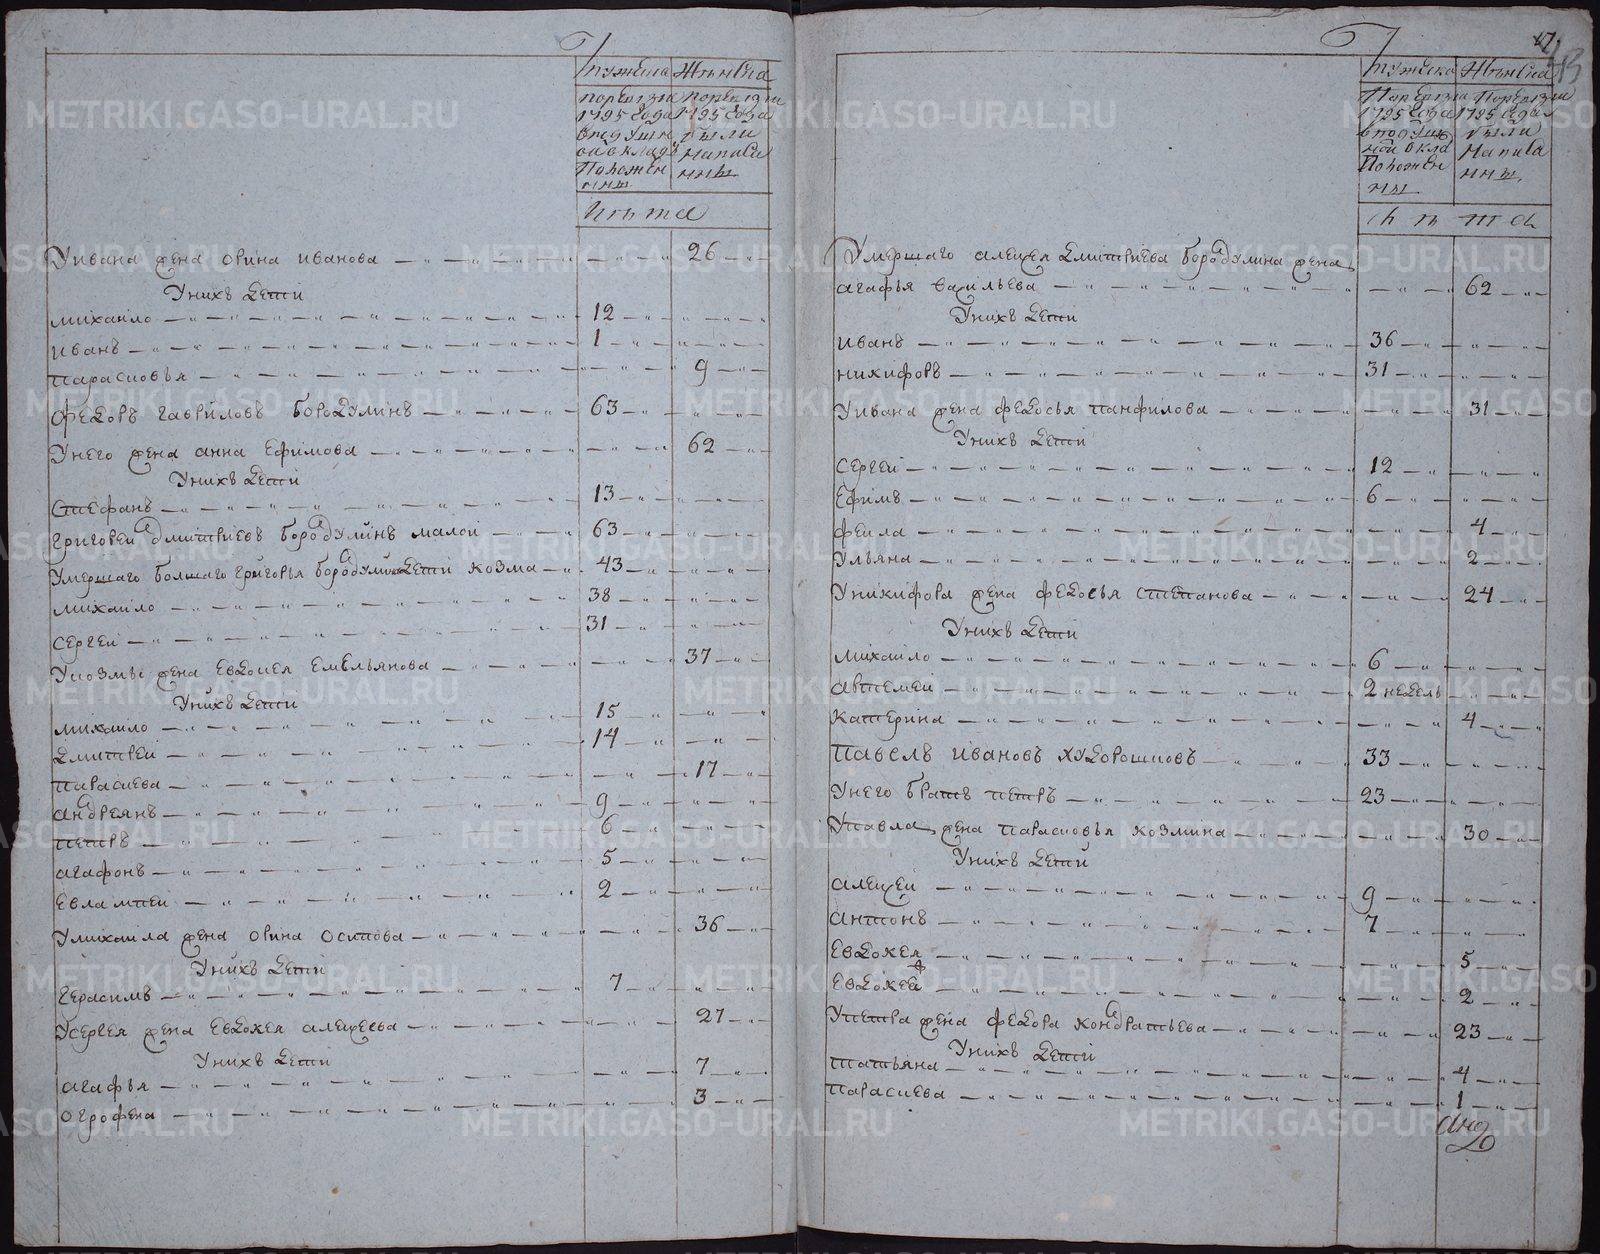 мужеска женска
поревизіи поревизіи
1795 года 1795 года
вподушн были
ой окладѣ написа
Положен нны
ины
лѣта
Уивана жена орина иванова 26
Унихъ дети
михаило 12
иванъ 1
парасковья 9
федоръ гавриловъ бородулинъ 63
Унего жена анна ефимова 62
Унихъ дети
стефанъ 13
григореи дмитриевъ бородулинъ малои 63
Умершаго болшаго григорья бородулина дети козма 43
михаило 38
сергеи 31
Укозмы жена евдокея емельянова 37
Унихъ дети
михаило 15
дмитреи 14
парасκева 17
андреянъ 9
петръ 6
агафонъ 5
евлампеи 2
Умихаила жена орина осипова 36
Унихъ дети
герасимъ 7
Усергея жена евдокея алеѯеева 27
Унихъ дети
агафья 7
огрофена 3
47
43
мужеска женска
Поревизіи Поревизіи
1795 года 1795 года
вподуш были
ной окла написа
Положен нны
ны
лѣта
Умершаго алеѯея дмитриева бородулина жена
агафья васильева 62
Унихъ дети
иванъ 36
никифоръ 31
Уивана жена федосья панфилова 31
Унихъ дети
сергеи 12
ефимъ 6
фекла 4
Ульяна 2
Уникифора жена федосья степанова 24
Унихъ дети
михаило 6
автемеи 2 недель
катерина 4
павелъ ивановъ худорошковъ 33
Унего братъ петръ 23
Упавла жена парасковья козмина 30
Унихъ дети
алеѯеи 9
антонъ 7
евдокея 5
евдокея ж 2
Упетра жена федора кондратьева 23
Унихъ дети
татьяна 4
парасκева 1